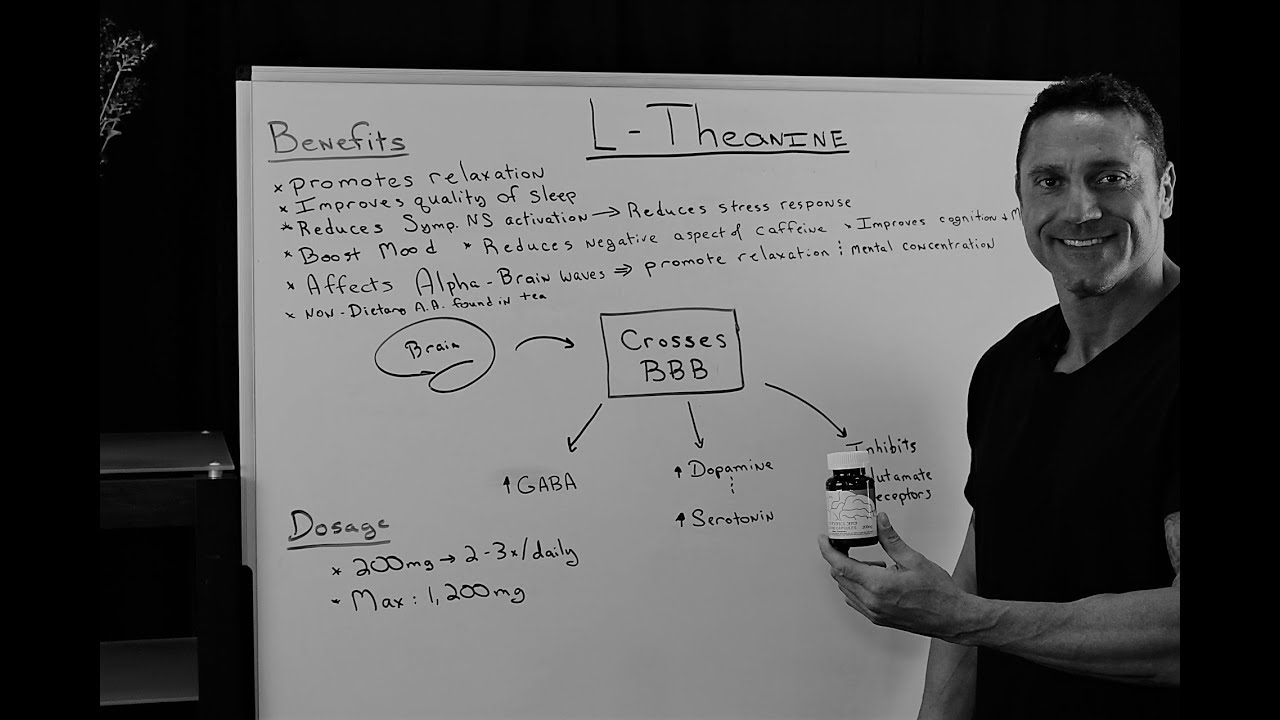 L-Theanine
Benefits
* Promotes relaxation
* Improves quality of sleep
* Reduces Symp. NS activation → Reduces stress response
* Boost Mood * Reduces negative aspect of caffeine * Improves cognition +
* Affects Alpha-Brain waves ⇒ promote relaxation & mental concentration
* Non-Dietary A.A. found in tea
Brain
Crosses
BBB
↑ GABA
↑ Dopamine
↑ Serotonin
Inhibits
lutamate
eceptors
Dosage
* 200mg → 2-3x/daily
* Max: 1,200mg